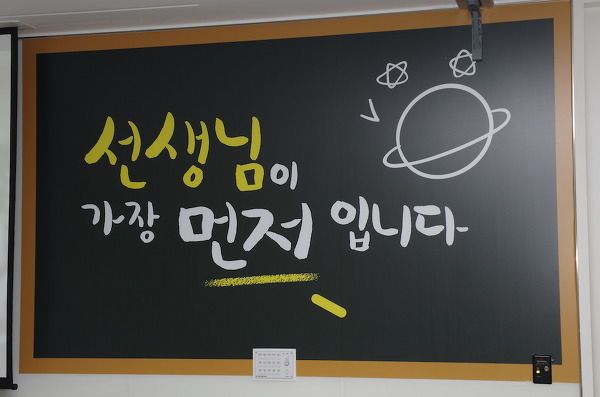 선생님이
가장 먼저 입니다